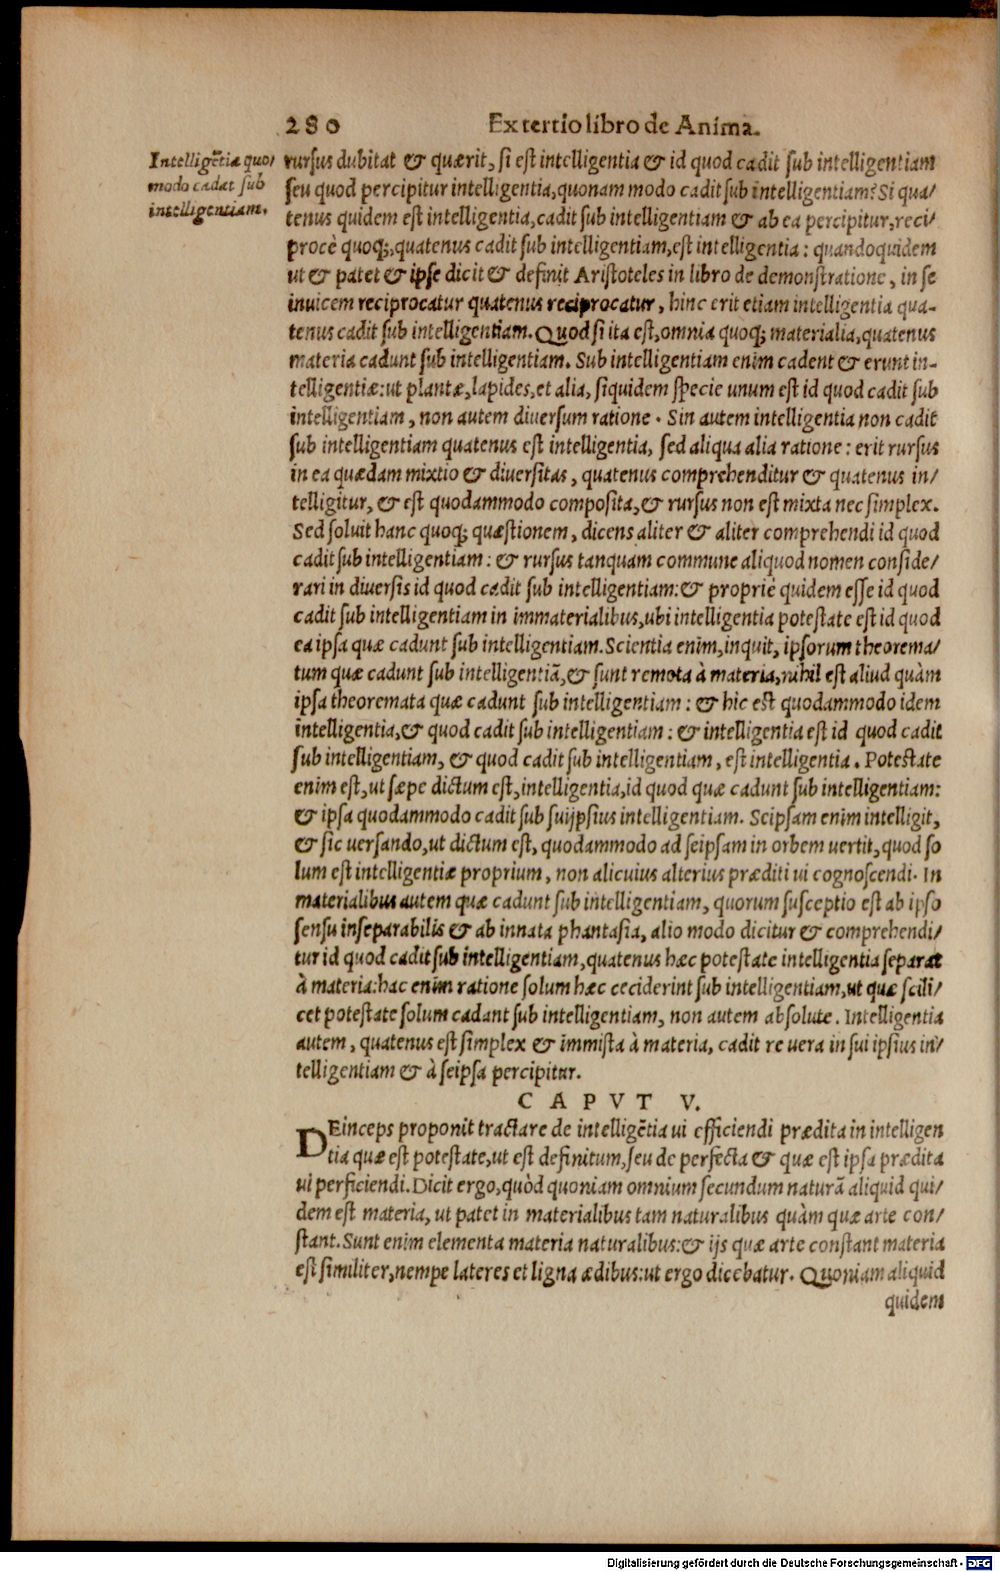 280 Ex tertio libro de Anima.
Intelligẽtia quo/
modo cadat sub
intelligentiam.
rursus dubitat & quærit, si est intelligentia & id quod cadit sub intelligentiam
seu quod percipitur intelligentia, quonam modo cadit sub intelligentiam? Si qua/
tenus quidem est intelligentia, cadit sub intelligentiam & ab ea percipitur, reci/
procè quoq;, quatenus cadit sub intelligentiam, est intelligentia: quandoquidem
ut & patet & ipse dicit & definit Aristoteles in libro de demonstratione, in se
inuicem reciprocatur quatenus reciprocatur, hinc erit etiam intelligentia qua-
tenus cadit sub intelligentiam. Quod si ita est, omnia quoq; materialia, quatenus
materia cadunt sub intelligentiam. Sub intelligentiam enim cadent & erunt in-
telligentiæ: ut plantæ, lapides, et alia, siquidem specie unum est id quod cadit sub
intelligentiam, non autem diuersum ratione. Sin autem intelligentia non cadit
sub intelligentiam quatenus est intelligentia, sed aliqua alia ratione: erit rursus
in ea quædam mixtio & diuersitas, quatenus comprehenditur & quatenus in/
telligitur, & est quodammodo composita, & rursus non est mixta nec simplex.
Sed soluit hanc quoq; quæstionem, dicens aliter & aliter comprehendi id quod
cadit sub intelligentiam: & rursus tanquam commune aliquod nomen conside/
rari in diuersis id quod cadit sub intelligentiam: & propriè quidem esse id quod
cadit sub intelligentiam in immaterialibus, ubi intelligentia potestate est id quod
ea ipsa quæ cadunt sub intelligentiam. Scientia enim, inquit, ipsorum theorema/
tum quæ cadunt sub intelligentiã, & sunt remota à materia, nihil est aliud quàm
ipsa theoremata quæ cadunt sub intelligentiam: & hic est quodammodo idem
intelligentia, & quod cadit sub intelligentiam: & intelligentia est id quod cadit
sub intelligentiam, & quod cadit sub intelligentiam, est intelligentia. Potestate
enim est, ut sæpe dictum est, intelligentia, id quod quæ cadunt sub intelligentiam:
& ipsa quodammodo cadit sub suijpsius intelligentiam. Seipsam enim intelligit,
& sic uersando, ut dictum est, quodammodo ad seipsam in orbem uertit, quod so
lum est intelligentiæ proprium, non alicuius alterius præditi ui cognoscendi. In
materialibus autem quæ cadunt sub intelligentiam, quorum susceptio est ab ipso
sensu inseparabilis & ab innata phantasia, alio modo dicitur & comprehendi/
tur id quod cadit sub intelligentiam, quatenus hæc potestate intelligentia separat
à materia: hac enim ratione solum hæc ceciderint sub intelligentiam, ut quæ scili/
cet potestate solum cadant sub intelligentiam, non autem absolute. Intelligentia
autem, quatenus est simplex & immista à materia, cadit re uera in sui ipsius in/
telligentiam & à seipsa percipitur.
CAPVT V.
DEinceps proponit tractare de intelligẽtia ui efficiendi prædita in intelligen
tia quæ est potestate, ut est definitum, seu de perfecta & quæ est ipsa prædita
ui perficiendi. Dicit ergo, quòd quoniam omnium secundum naturã aliquid qui/
dem est materia, ut patet in materialibus tam naturalibus quàm quæ arte con/
stant. Sunt enim elementa materia naturalibus: & ijs quæ arte constant materia
est similiter, nempe lateres et ligna ædibus: ut ergo dicebatur. Quoniam aliquid
quidem
Digitalisierung gefördert durch die Deutsche Forschungsgemeinschaft - DFG